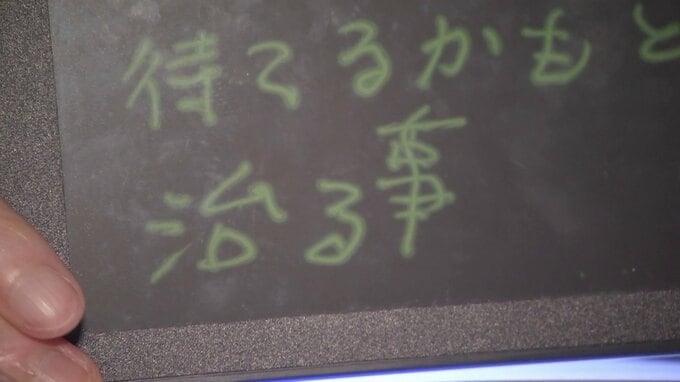 待てるかもと
治る事